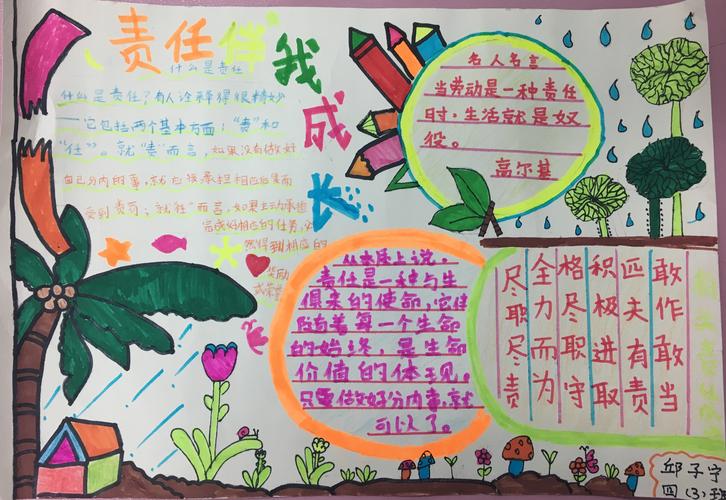 责任伴我成长
什么是责任
什么是责任?有人诠释得很精妙
——它包括两个基本方面:“责”和
“任”。就“责”而言,如果没有做好
自己分内的事,就应该承担相应后果而
受到责罚;就“任”而言,如果主动承担
完成好相应的任务,必
然得到相应的
奖励
名人名言
当劳动是一种责任
时,生活就是奴
役。
高尔基
从本质上说,
责任是一种与生
俱来的使命,它伴
随着每一个生命
的始终,是生命
价值的体现。
只要做好分内事,就
可以了。
敢作敢当
匹夫有责
积极进取
格尽职守
全力而为
尽职尽责
邱子
四(3)班